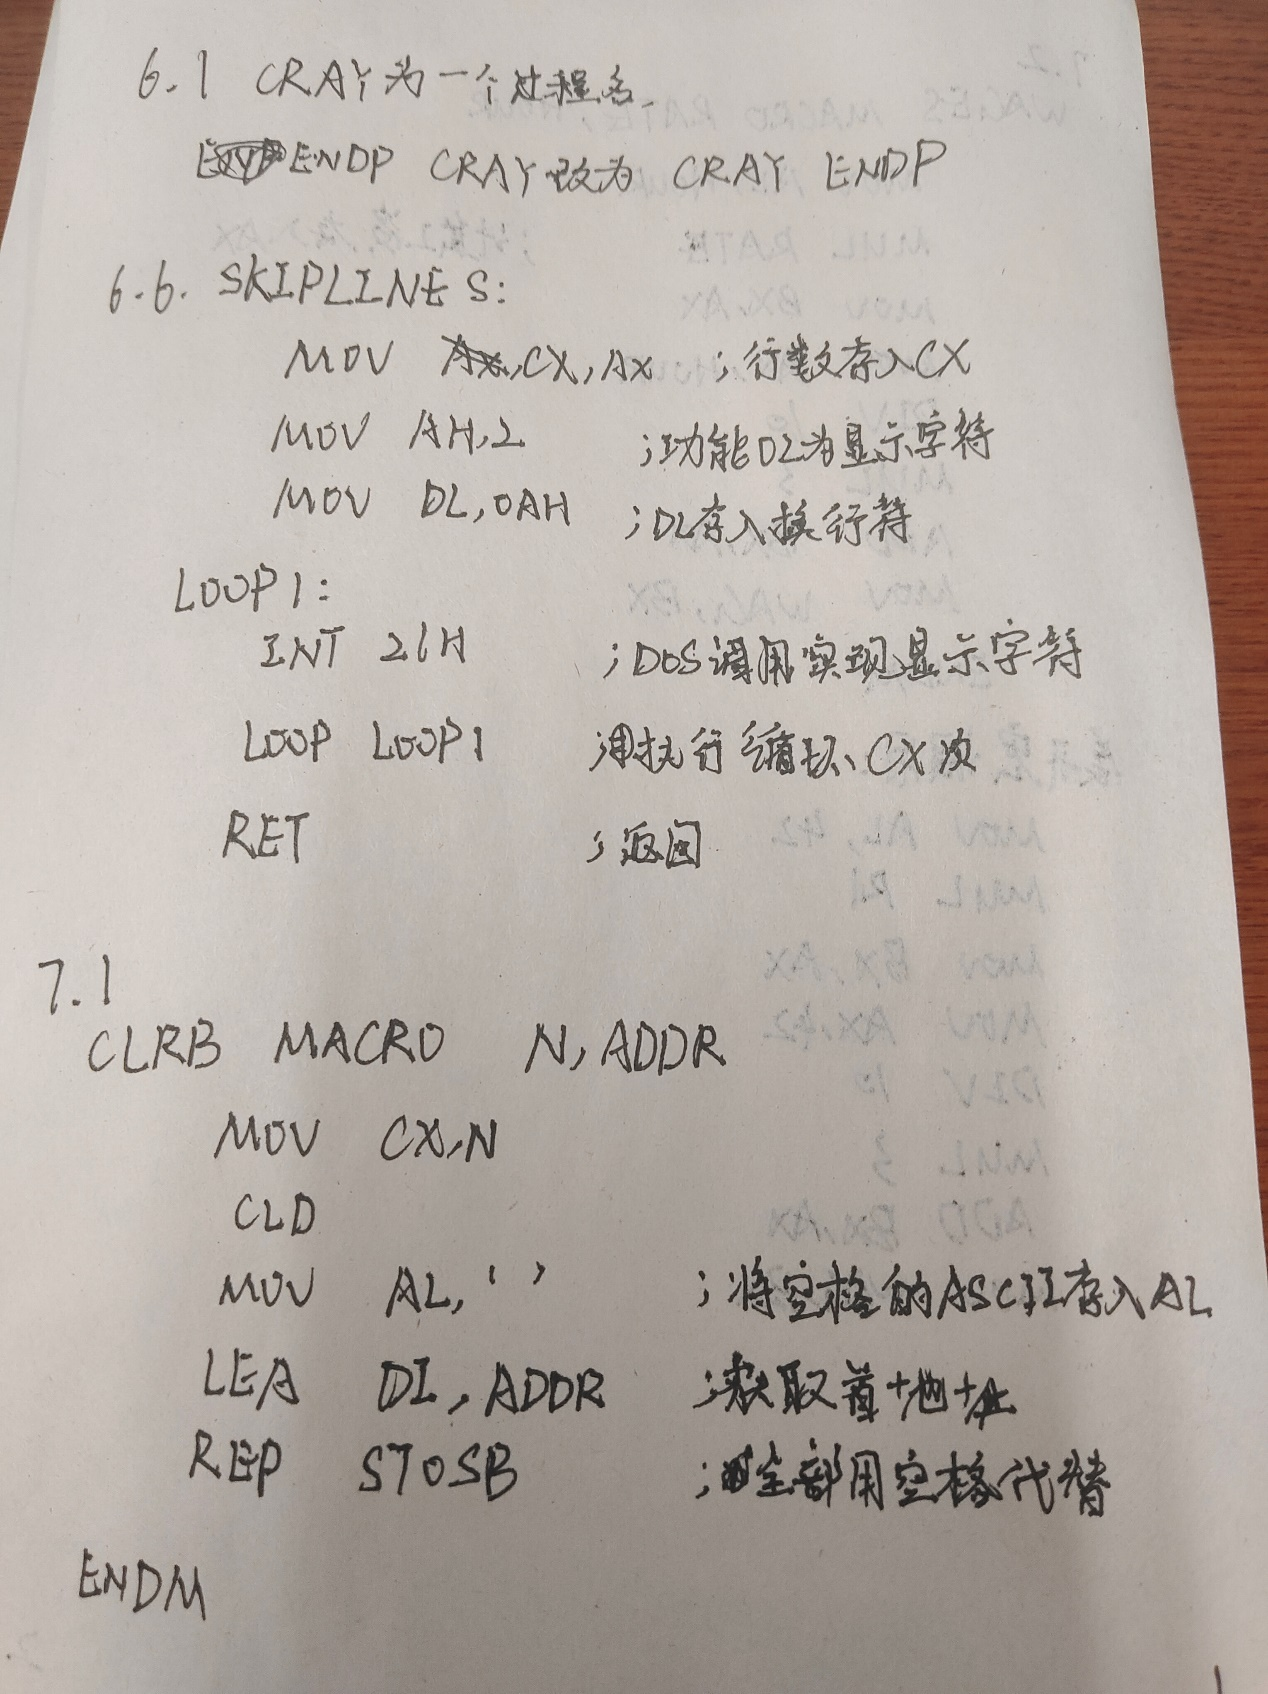 6.1 CRAY为一个过程名.
ENDP CRAY改为 CRAY ENDP
6.6. SKIPLINES:
MOV CX,AX ;行数存入CX
MOV AH,2 ;功能DL为显示字符
MOV DL,0AH ;DL存入换行符
LOOP1:
INT 21H ;DOS调用实现显示字符
LOOP LOOP1 ;执行循环CX次
RET ;返回
7.1
CLRB MACRO N,ADDR
MOV CX,N
CLD
MOV AL,' ' ;将空格的ASCII存入AL
LEA DI,ADDR ;获取首地址
REP STOSB ;全部用空格代替
ENDM